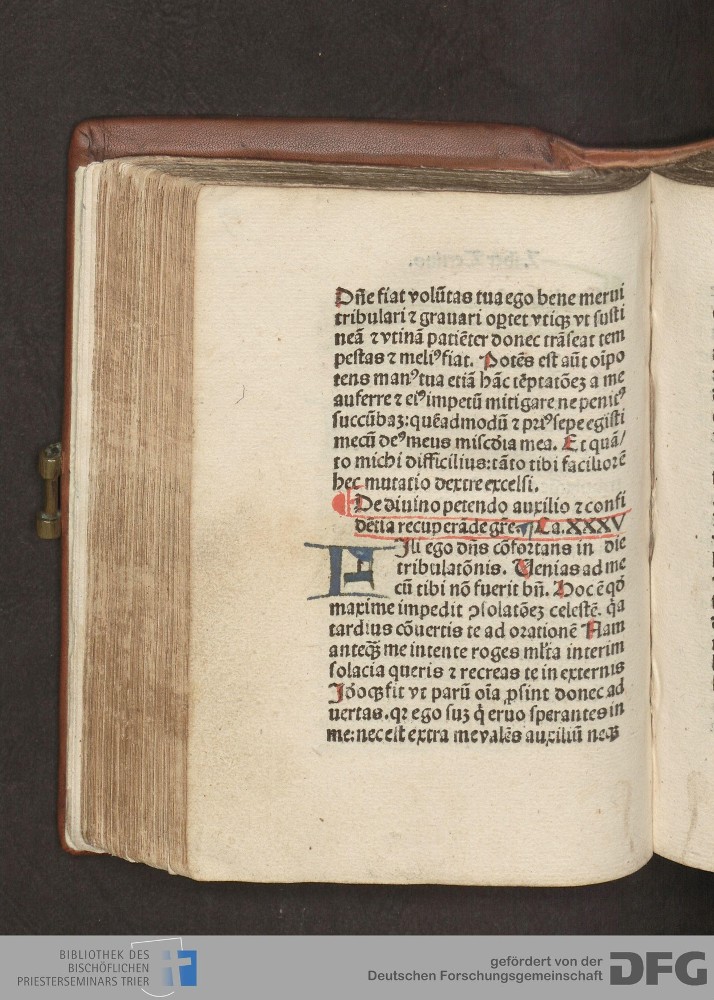 Dñe fiat volũtas tua ego bene merui
tribulari ⁊ grauari oꝑtet vtiqꝫ vt susti
neã ⁊ vtinã patiẽter donec trãseat tem
pestas ⁊ meliꝰ fiat. Potẽs est aũt oĩpo
tens manꝰ tua etiã hãc tẽptatõeꝫ a me
auferre ⁊ eiꝰ impetũ mitigare ne penitꝰ
succũbaꝫ: quẽadmodũ ⁊ priꝰ sepe egisti
mecũ deꝰ meus miscdia mea. Et quã/
to michi difficilius: tãto tibi faciliorẽ
hec mutatio dextre excelsi.
De diuino petendo auxilio ⁊ confi
dẽtia recuperãde gr̃e. Ca. XXXV
Fili ego dñs cõfortans in die
tribulatõnis. Venias ad me
cũ tibi nõ fuerit bñ. Hoc ẽ qđ
maxime impedit ꝯsolatõeꝫ celestẽ. q̃a
tardius cõuertis te ad orationẽ Nam
anteqꝫ me intente roges ml̃ta interim
solacia queris ⁊ recreas te in externis
Idoqꝫ fit vt parũ oĩa ꝓsint donec ad
uertas. qꝛ ego suꝫ q̇ eruo sperantes in
me: nec est extra me valẽs auxiliũ neqꝫ
BIBLIOTHEK DES
BISCHÖFLICHEN
PRIESTERSEMINARS TRIER
gefördert von der
Deutschen Forschungsgemeinschaft
DFG